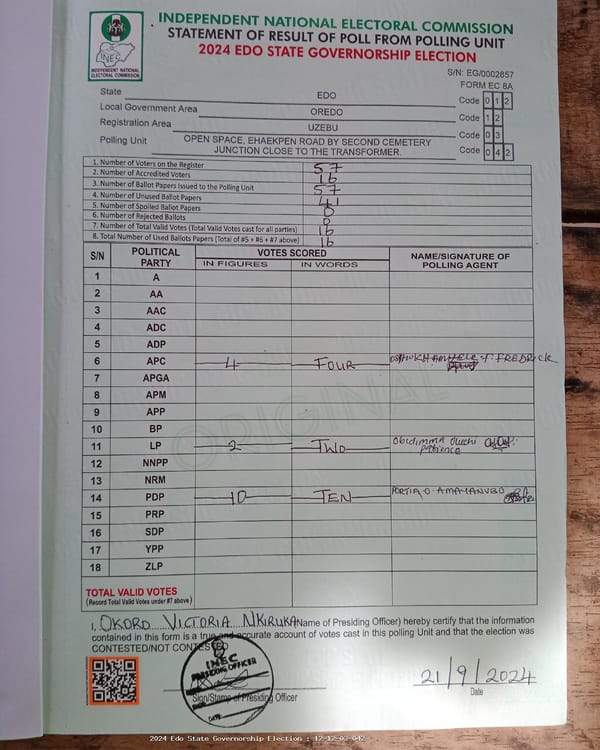 INDEPENDENT NATIONAL ELECTORAL COMMISSION
STATEMENT OF RESULT OF POLL FROM POLLING UNIT
2024 EDO STATE GOVERNORSHIP ELECTION
INEC
INDEPENDENT NATIONAL
ELECTORAL COMMISSION
S/N: EG/0002857
FORM EC 8A
State EDO Code 0 1 2
Local Government Area OREDO Code 1 2
Registration Area UZEBU Code 0 3
Polling Unit OPEN SPACE, EHAEKPEN ROAD BY SECOND CEMETERY JUNCTION CLOSE TO THE TRANSFORMER. Code 0 4 2
1. Number of Voters on the Register 57
2. Number of Accredited Voters 16
3. Number of Ballot Papers Issued to the Polling Unit 57
4. Number of Unused Ballot Papers 41
5. Number of Spoiled Ballot Papers 0
6. Number of Rejected Ballots 0
7. Number of Total Valid Votes (Total Valid Votes cast for all parties) 16
8. Total Number of Used Ballots Papers (Total of #5 + #6 + #7 above) 16
S/N POLITICAL PARTY VOTES SCORED NAME/SIGNATURE OF POLLING AGENT
IN FIGURES IN WORDS
1 A
2 AA
3 AAC
4 ADC
5 ADP
6 APC 4 FOUR FREDRICK
7 APGA
8 APM
9 APP
10 BP
11 LP 2 TWO Obidimma Oluchi Patience
12 NNPP
13 NRM
14 PDP 10 TEN PORTIA O. AMAYANVBO
15 PRP
16 SDP
17 YPP
18 ZLP
ORIGINAL
TOTAL VALID VOTES
(Record Total Valid Votes under #7 above)
I, OKORO VICTORIA NKIRUKA (Name of Presiding Officer) hereby certify that the information
contained in this form is a true and accurate account of votes cast in this polling Unit and that the election was
CONTESTED/NOT CONTESTED
INEC
PRESIDING OFFICER
DATE
Sign/Stamp of Presiding Officer
21/9/2024
Date
2024 Edo State Governorship Election : 12-12-03-042